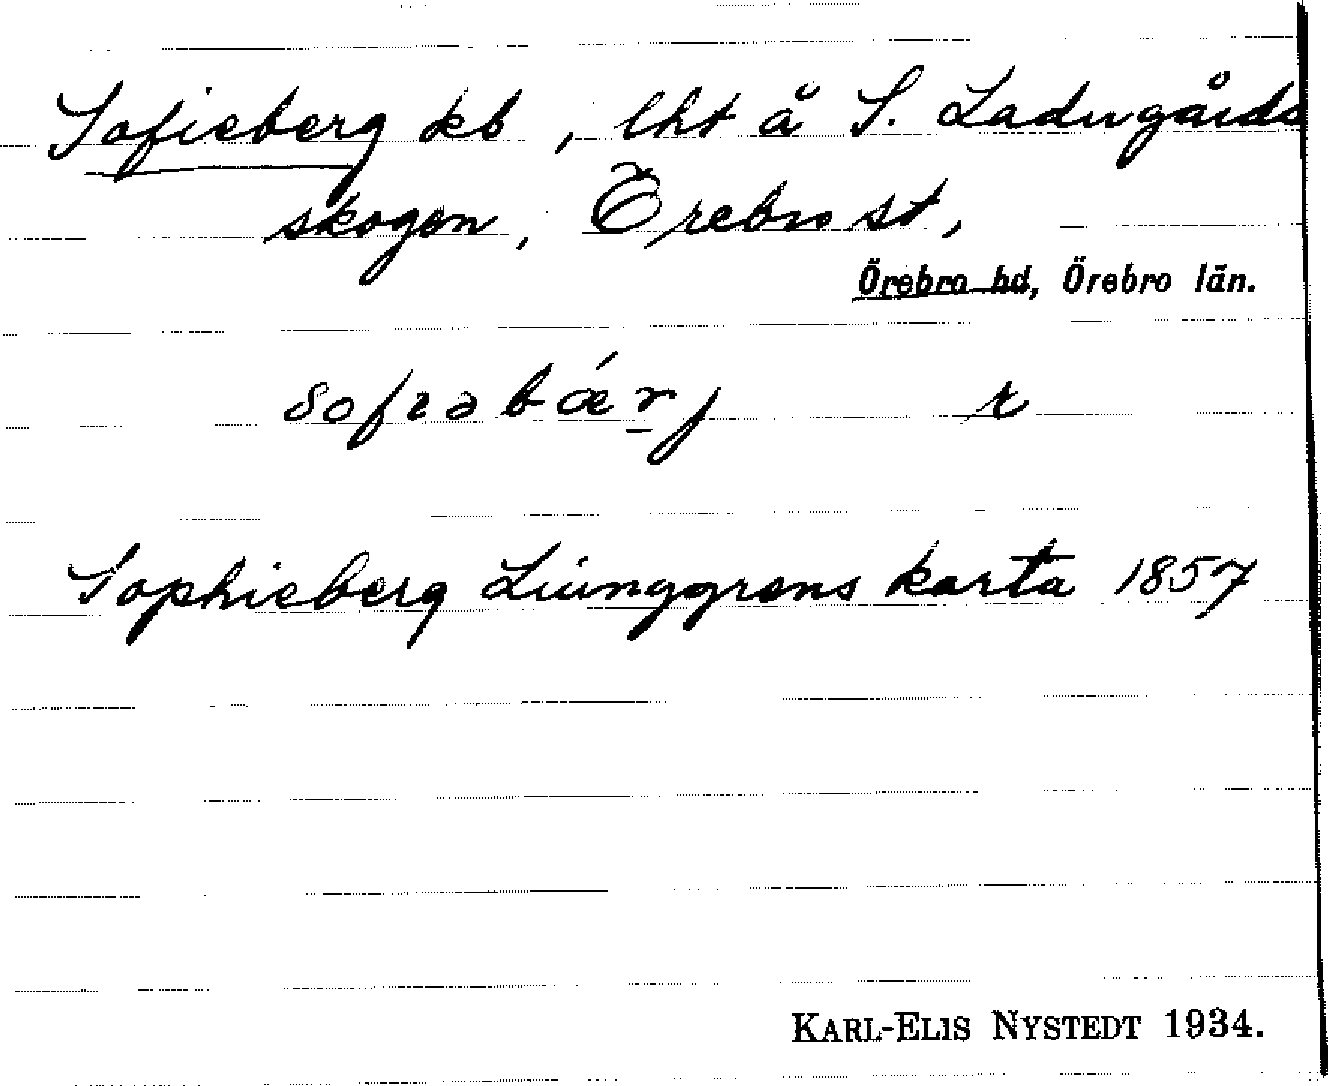 Sofieberg kb, lht å S. Ladugårds
skogen, Örebro st,
Örebro hd, Örebro län.
sofɩəbǽrj r
Sophieberg Liunggrens karta 1857
KARL-ELIS NYSTEDT 1934.